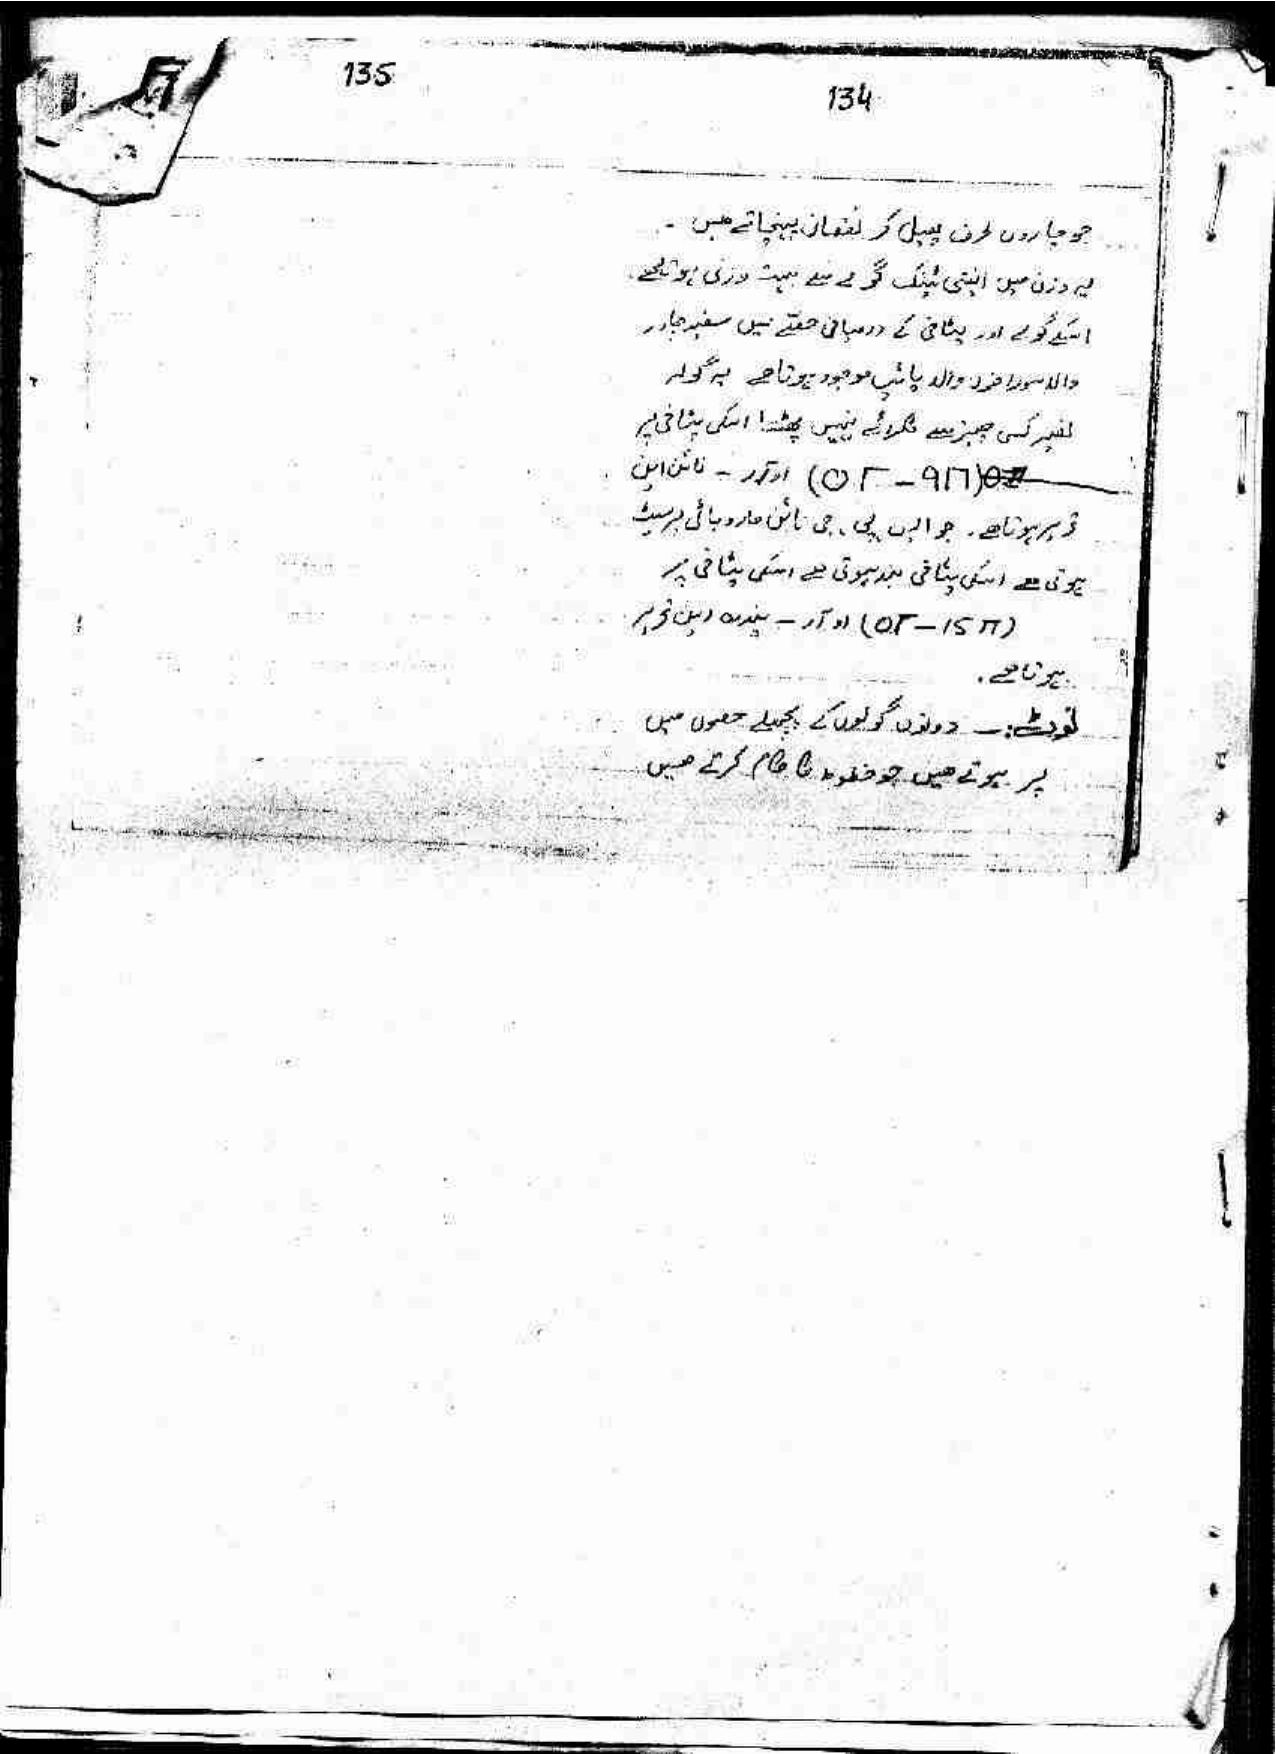 135
134
جو چاروں طرف پھیل کر نقصان پہنچاتے ھیں ۔
یہ وزن میں اینٹی ٹینک گولے سے بہت وزنی ہوتا ھے۔
اسکے گولے اور پٹاخی کے درمیانی حصّے میں سفید چادر
والا سوراخوں والا پائپ موجود ہوتا ھے یہ گولہ
بغیر کسی چیز سے ٹکرائے نہیں پھٹتا اسکی پٹاخی پر
(ОГ-9П) او آر - نائن این
تحریر ہوتا ھے۔ جو ایس پی۔ جی نائن مارو بائی پرسیٹ
ہوتی ھے اسکی پٹاخی بند ہوتی ھے اسکی پٹاخی پر
(ОГ-15П) او آر - پندرہ این تحریر
ہوتا ھے۔
نوٹ:- دونوں گولوں کے پچھلے حصوں میں
پر ہوتے ھیں جو خطوط کا کام کرتے ھیں